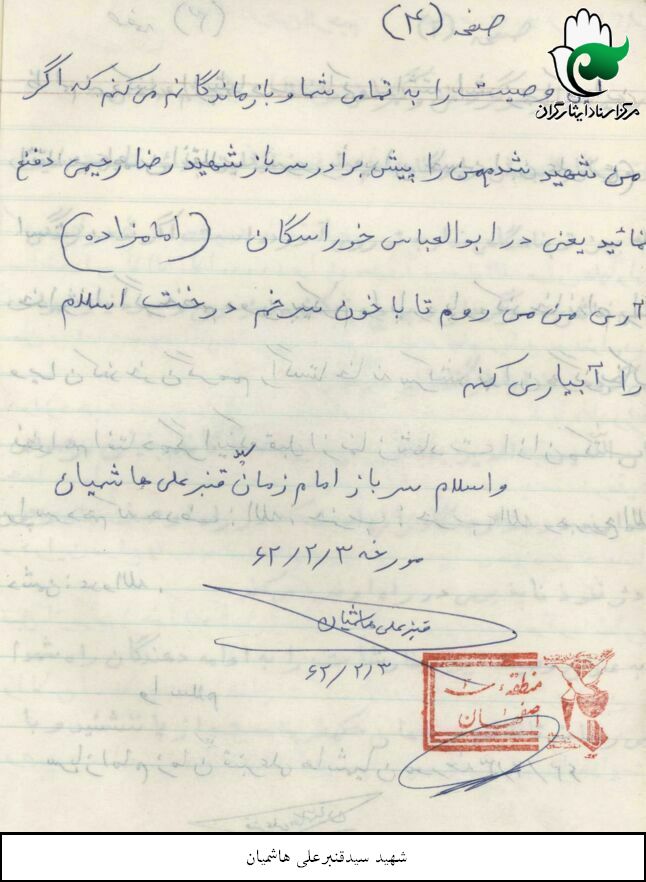 صفحه (۴)
مرکز اسناد ایثارگران
این وصیت را به تمامی شما و بازماندگانم می‌کنم که اگر
من شهید شدم من را پیش برادر سرباز شهید رضا رحیمی دفن
نمائید یعنی در ابوالعباس خوراسگان (امامزاده)
آری من می روم تا با خون سرخم درخت اسلام
را آبیاری کنم
واسلام سرباز امام زمان سید قنبرعلی هاشمیان
مورخه ۶۲/۲/۳
قنبرعلی هاشمیان
۶۲/۲/۳
منطقه ۲
اصفهان
شهید سیدقنبرعلی هاشمیان